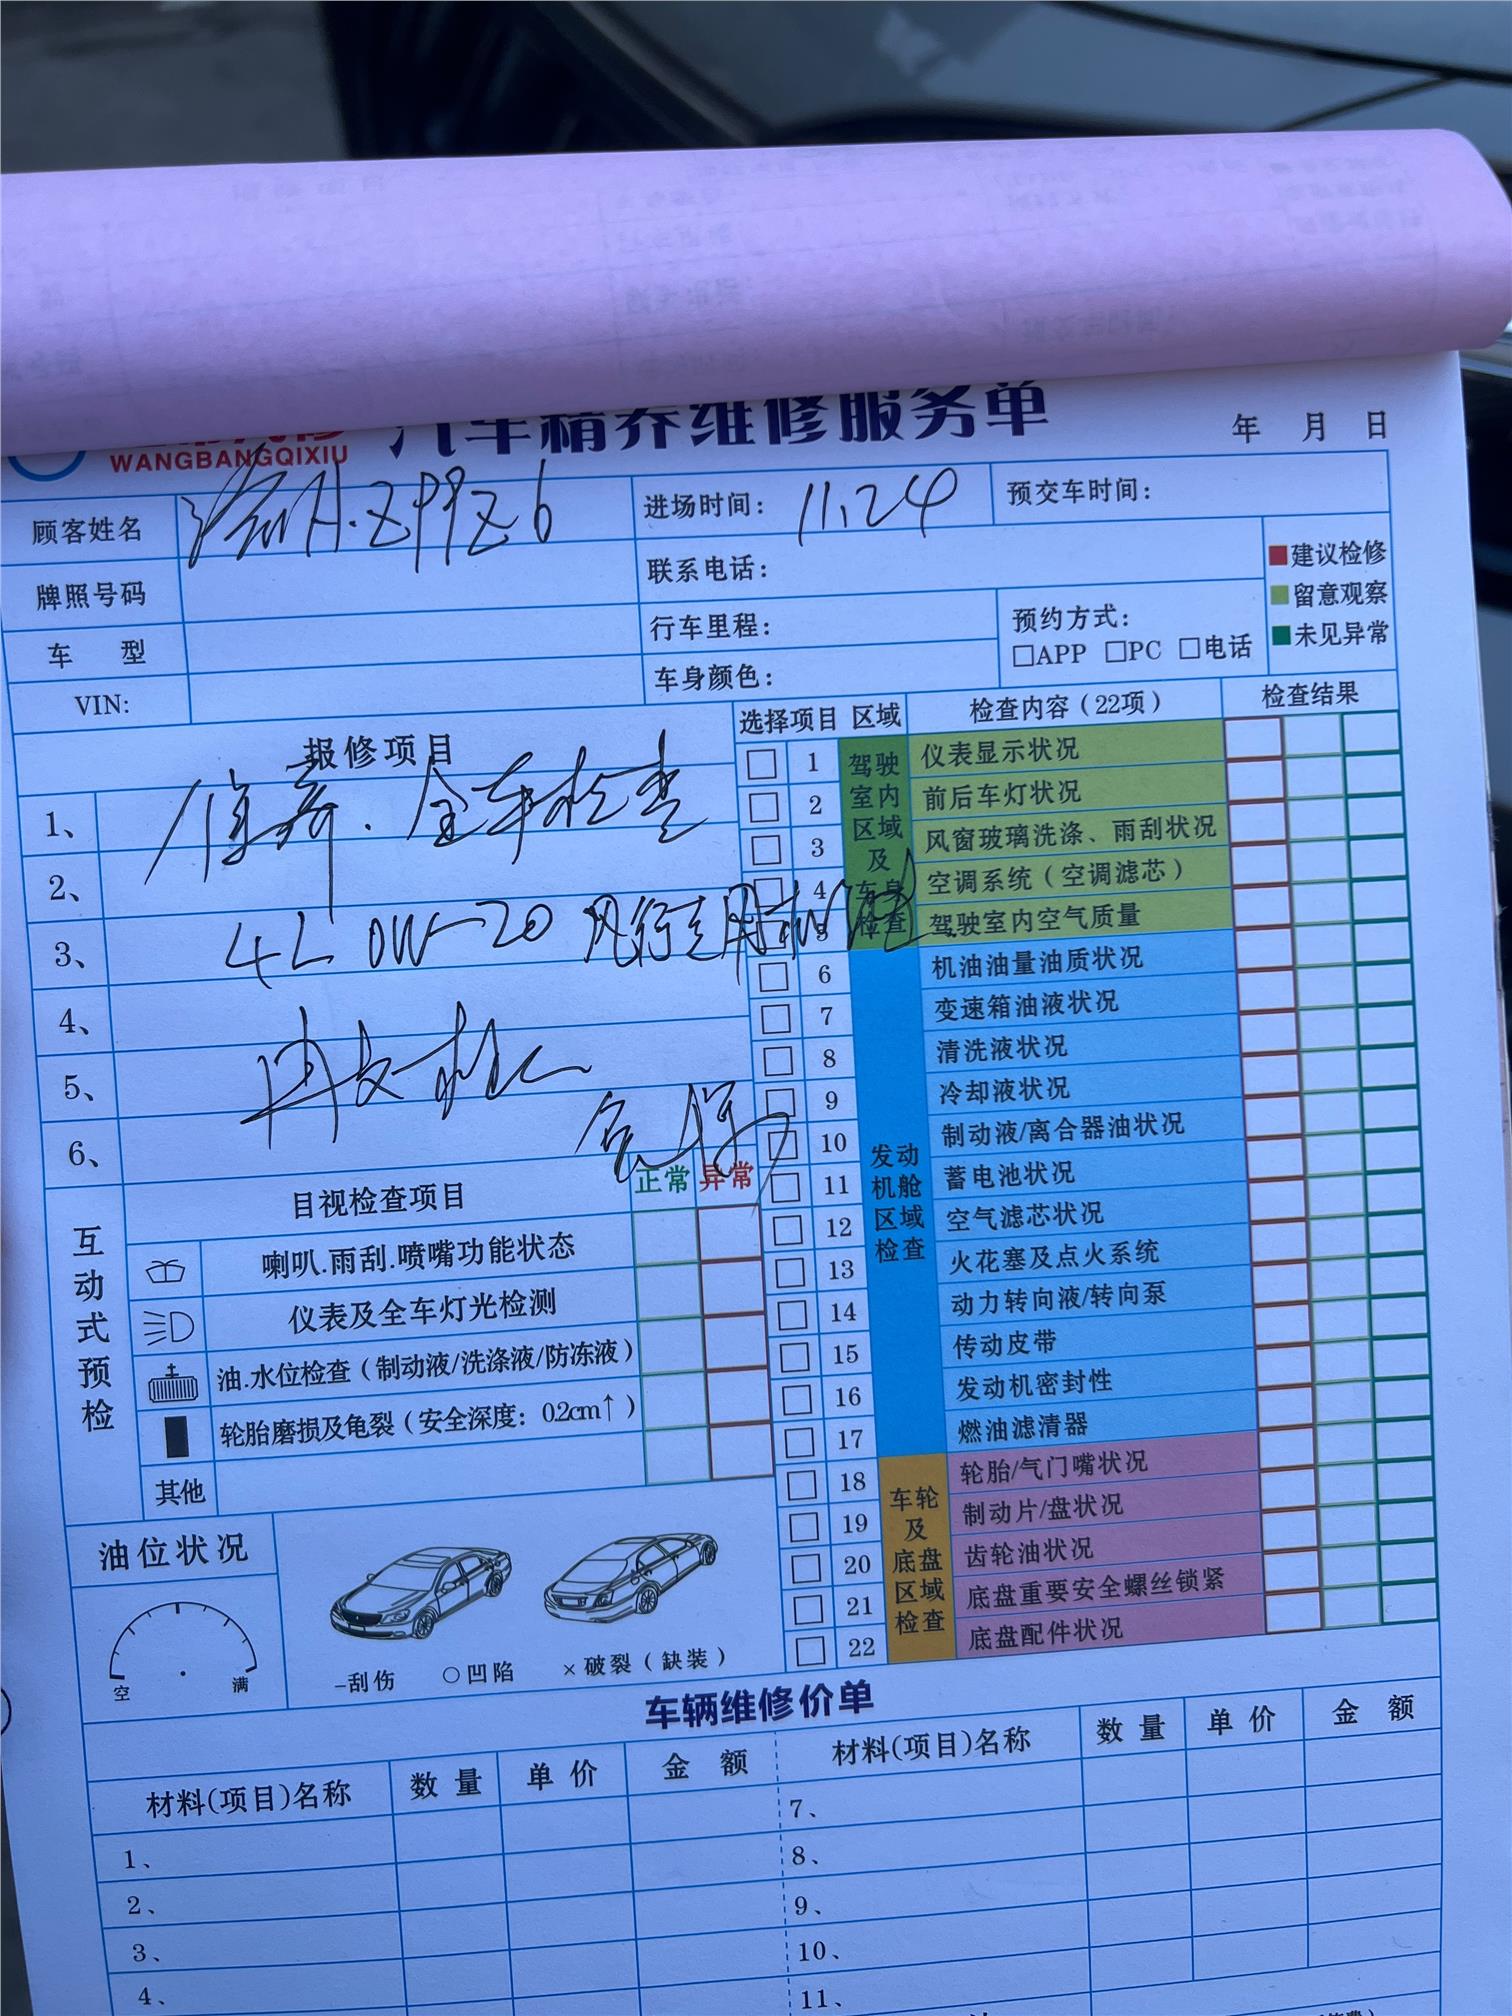 汽车精养维修服务单
WANGBANGQIXIU
年 月 日
顾客姓名 渝A·Z99Z6 进场时间: 11.24 预交车时间:
牌照号码 联系电话:
建议检修
留意观察
未见异常
车 型 行车里程: 预约方式:
□APP □PC □电话
VIN: 车身颜色:
报修项目
1、 保养. 全车检查
2、
3、 4L 0W-20 风行专用机油
4、
5、
6、
选择项目 区域 检查内容(22项) 检查结果
驾驶室内区域及车身检查
1 仪表显示状况
2 前后车灯状况
3 风窗玻璃洗涤、雨刮状况
4 空调系统(空调滤芯)
5 驾驶室内空气质量
发动机舱区域检查
6 机油油量油质状况
7 变速箱油液状况
8 清洗液状况
9 冷却液状况
10 制动液/离合器油状况
11 蓄电池状况
12 空气滤芯状况
13 火花塞及点火系统
14 动力转向液/转向泵
15 传动皮带
16 发动机密封性
17 燃油滤清器
车轮及底盘区域检查
18 轮胎/气门嘴状况
19 制动片/盘状况
20 齿轮油状况
21 底盘重要安全螺丝锁紧
22 底盘配件状况
互动式预检
目视检查项目 正常 异常
喇叭.雨刮.喷嘴功能状态
仪表及全车灯光检测
油.水位检查(制动液/洗涤液/防冻液)
轮胎磨损及龟裂(安全深度: 0.2cm↑)
其他
油位状况
空 满
-刮伤 ○凹陷 ×破裂(缺装)
车辆维修价单
材料(项目)名称 数 量 单 价 金 额 材料(项目)名称 数 量 单 价 金 额
1、 7、
2、 8、
3、 9、
4、 10、
11、